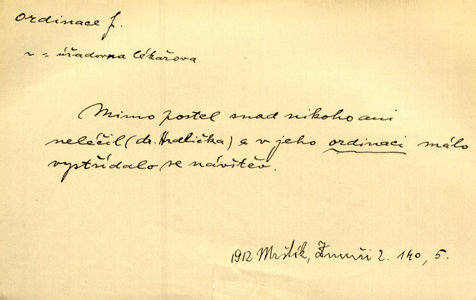 ordinace f.
~ = úřadovna lékařova
Mimo postel snad nikoho ani
neléčil (dr. Hrdlička) a v jeho ordinaci málo
vystřídalo se návštěv.
1912 Mrštík, Zumři 2. 140, 5.